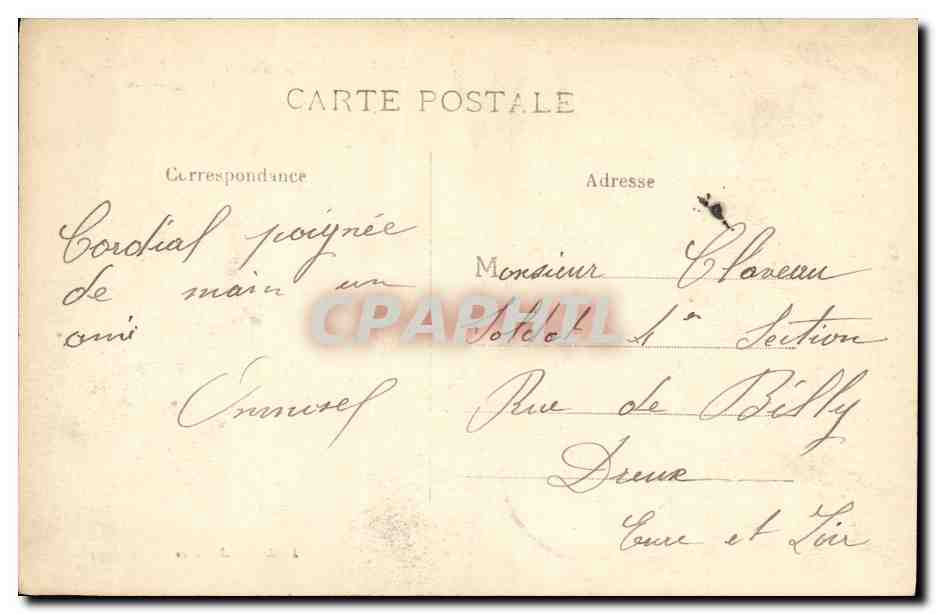 CARTE POSTALE
Correspondance
Cordial poignée
de main un
ami
Adresse
Monsieur Claveau
Soldat 1e Section
Rue de Billy
Dreux
Eure et Loir
CPAPHIL